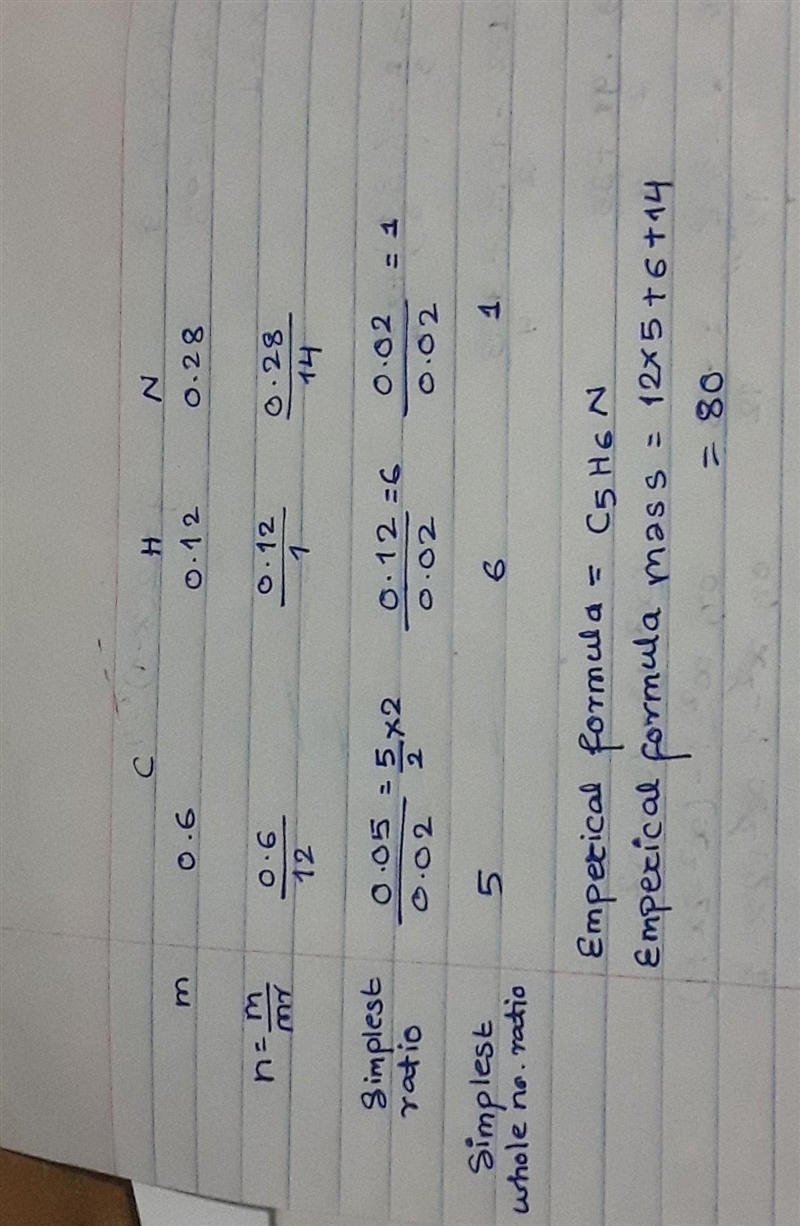 C H N
m 0.6 0.12 0.28
n = m/mr 0.6/12 0.12/1 0.28/14
Simplest ratio 0.05/0.02 = 5/2 ×2 0.12/0.02 = 6 0.02/0.02 = 1
Simplest whole no. ratio 5 6 1
Emperical formula = C5H6N
Emperical formula mass = 12×5+6+14
= 80